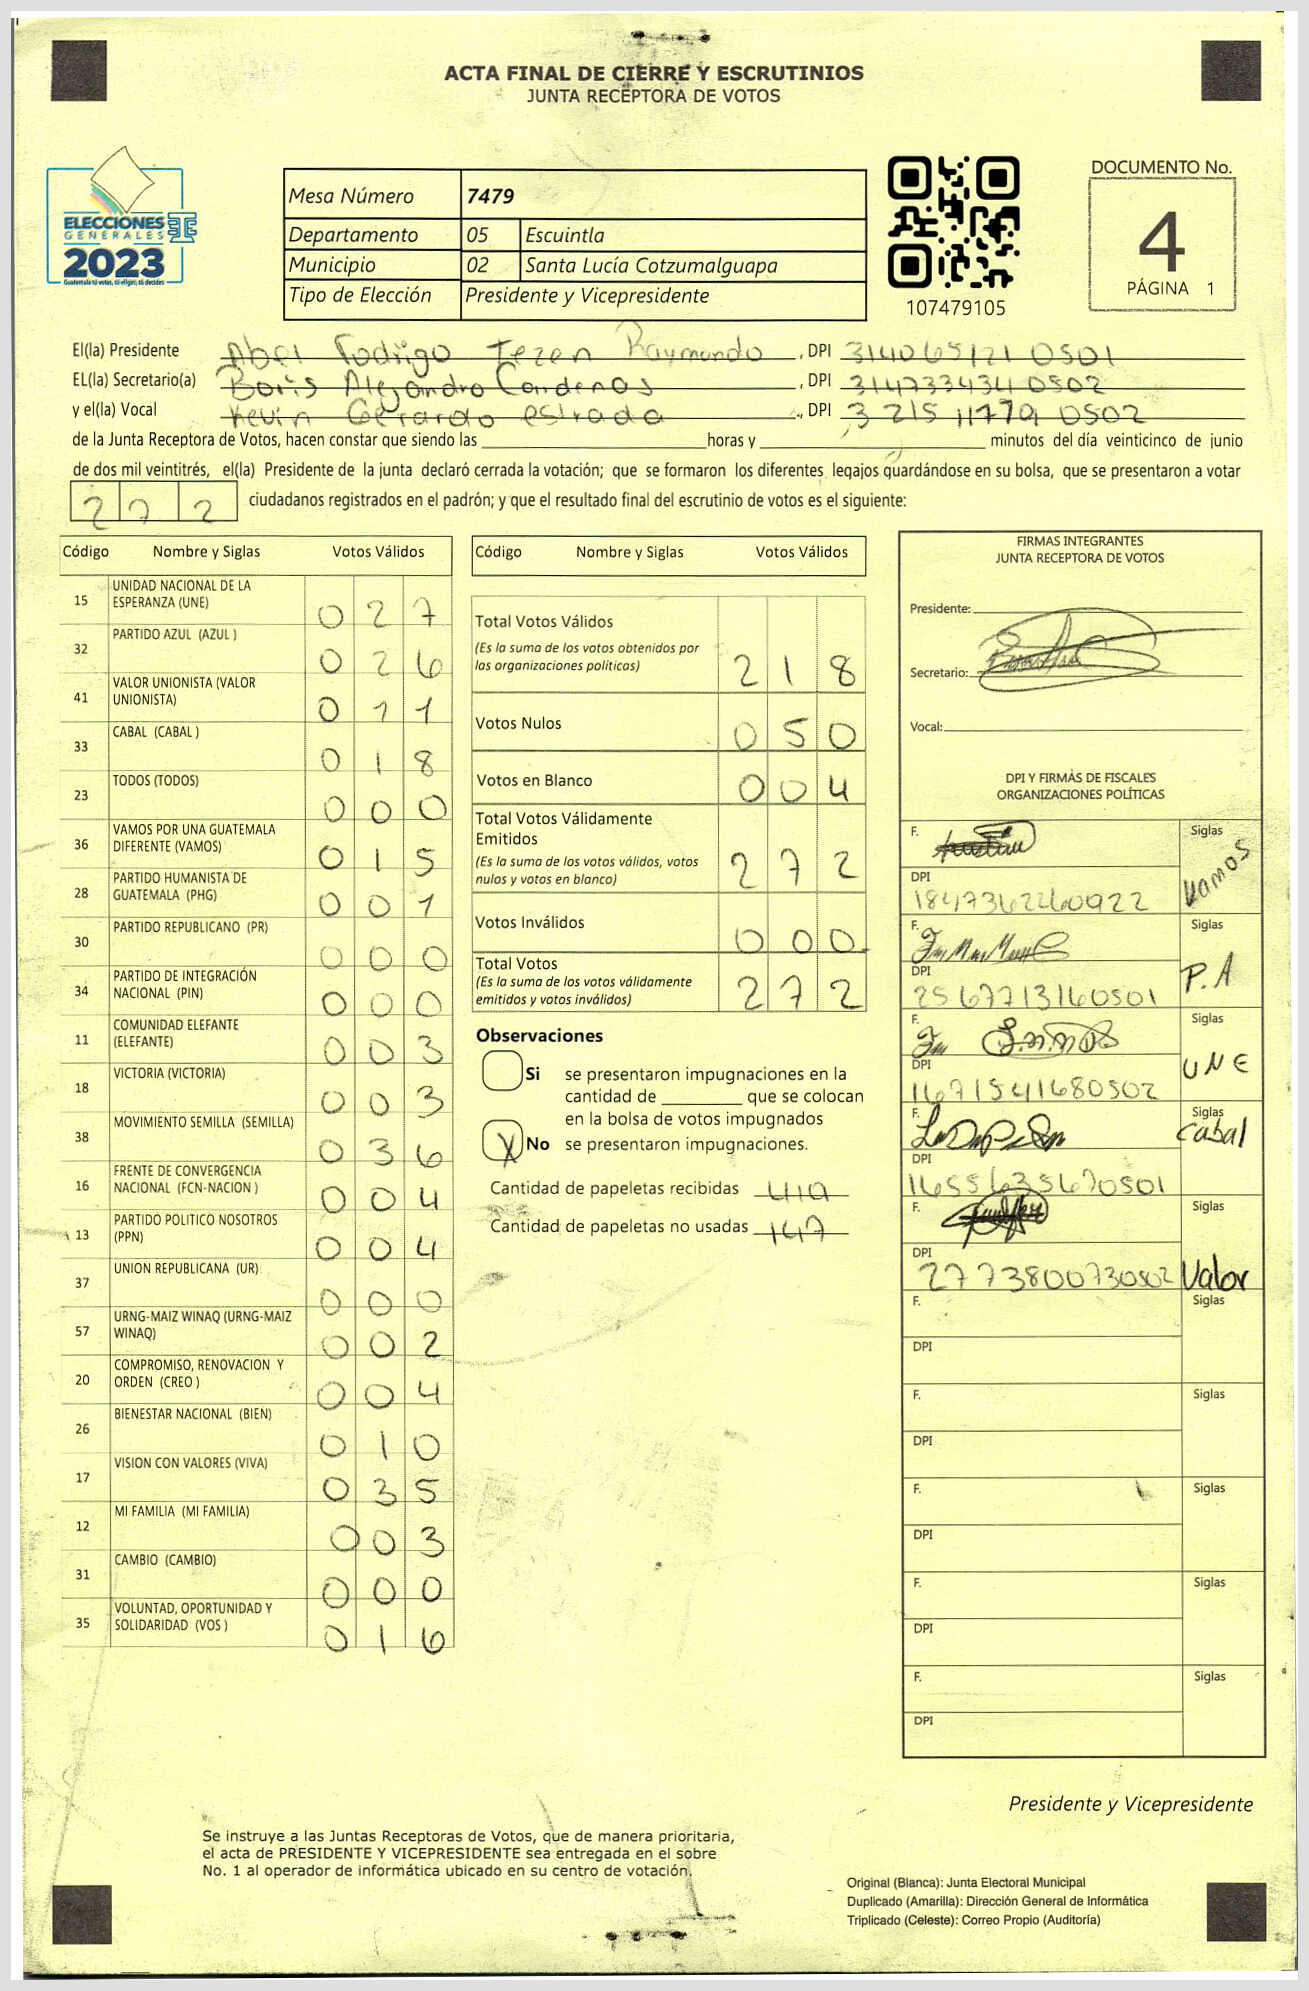 ACTA FINAL DE CIERRE Y ESCRUTINIOS
JUNTA RECEPTORA DE VOTOS
ELECCIONES
GENERALES
2023
Guatemala tú votas, tú eliges, tú decides
Mesa Número 7479
Departamento 05 Escuintla
Municipio 02 Santa Lucía Cotzumalguapa
Tipo de Elección Presidente y Vicepresidente
107479105
DOCUMENTO No.
4
PÁGINA 1
El(la) Presidente Abel Rodrigo Tezen Raymundo , DPI 314065121 0501
EL(la) Secretario(a) Boris Alejandro Cardenas , DPI 314733434 0502
y el(la) Vocal Kevin Gerardo estrada , DPI 3 215 11779 0502
de la Junta Receptora de Votos, hacen constar que siendo las horas y minutos del día veinticinco de junio
de dos mil veintitrés, el(la) Presidente de la junta declaró cerrada la votación; que se formaron los diferentes legajos guardándose en su bolsa, que se presentaron a votar
272 ciudadanos registrados en el padrón; y que el resultado final del escrutinio de votos es el siguiente:
Código Nombre y Siglas Votos Válidos
15 UNIDAD NACIONAL DE LA ESPERANZA (UNE) 027
32 PARTIDO AZUL (AZUL ) 026
41 VALOR UNIONISTA (VALOR UNIONISTA) 011
33 CABAL (CABAL ) 018
23 TODOS (TODOS) 000
36 VAMOS POR UNA GUATEMALA DIFERENTE (VAMOS) 015
28 PARTIDO HUMANISTA DE GUATEMALA (PHG) 001
30 PARTIDO REPUBLICANO (PR) 000
34 PARTIDO DE INTEGRACIÓN NACIONAL (PIN) 000
11 COMUNIDAD ELEFANTE (ELEFANTE) 003
18 VICTORIA (VICTORIA) 003
38 MOVIMIENTO SEMILLA (SEMILLA) 036
16 FRENTE DE CONVERGENCIA NACIONAL (FCN-NACION ) 004
13 PARTIDO POLITICO NOSOTROS (PPN) 004
37 UNION REPUBLICANA (UR) 000
57 URNG-MAIZ WINAQ (URNG-MAIZ WINAQ) 002
20 COMPROMISO, RENOVACION Y ORDEN (CREO ) 004
26 BIENESTAR NACIONAL (BIEN) 010
17 VISION CON VALORES (VIVA) 035
12 MI FAMILIA (MI FAMILIA) 003
31 CAMBIO (CAMBIO) 000
35 VOLUNTAD, OPORTUNIDAD Y SOLIDARIDAD (VOS ) 016
Código Nombre y Siglas Votos Válidos
Total Votos Válidos
(Es la suma de los votos obtenidos por
las organizaciones políticas) 218
Votos Nulos 050
Votos en Blanco 004
Total Votos Válidamente
Emitidos
(Es la suma de los votos válidos, votos
nulos y votos en blanco) 272
Votos Inválidos 000
Total Votos
(Es la suma de los votos válidamente
emitidos y votos inválidos) 272
Observaciones
Si se presentaron impugnaciones en la
cantidad de que se colocan
en la bolsa de votos impugnados
X No se presentaron impugnaciones.
Cantidad de papeletas recibidas 419
Cantidad de papeletas no usadas 147
FIRMAS INTEGRANTES
JUNTA RECEPTORA DE VOTOS
Presidente:
Secretario:
Vocal:
DPI Y FIRMAS DE FISCALES
ORGANIZACIONES POLÍTICAS
F. Siglas Vamos
DPI 1847362260922
F. Siglas P.A
DPI 2567713160501
F. Siglas UNE
DPI 1671541680502
F. Siglas Cabal
DPI 1655635670501
F. Siglas Valor
DPI 2773800730502
F. Siglas
DPI
F. Siglas
DPI
F. Siglas
DPI
F. Siglas
DPI
F. Siglas
DPI
Presidente y Vicepresidente
Se instruye a las Juntas Receptoras de Votos, que de manera prioritaria,
el acta de PRESIDENTE Y VICEPRESIDENTE sea entregada en el sobre
No. 1 al operador de informática ubicado en su centro de votación.
Original (Blanca): Junta Electoral Municipal
Duplicado (Amarilla): Dirección General de Informática
Triplicado (Celeste): Correo Propio (Auditoría)